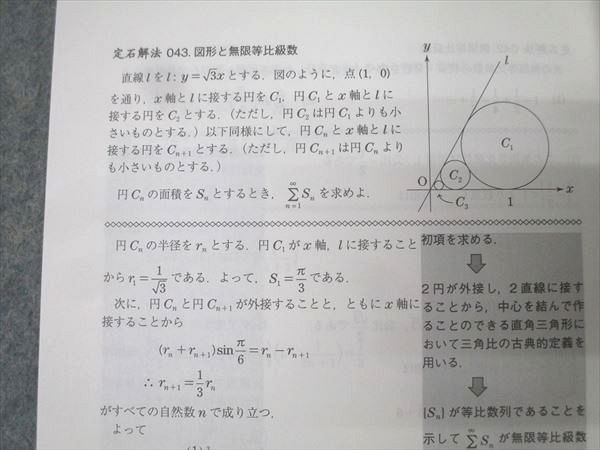 定石解法 043.図形と無限等比級数
直線lをl：y＝√3xとする．図のように，点(1, 0)
を通り，x軸とlに接する円をC₁，円C₁とx軸とlに
接する円をC₂とする．（ただし，円C₂は円C₁よりも小
さいものとする．）以下同様にして，円Cₙとx軸とlに
接する円をCₙ₊₁とする．（ただし，円Cₙ₊₁は円Cₙより
も小さいものとする．）
円Cₙの面積をSₙとするとき，∑[n=1→∞]Sₙを求めよ．
y
l
C₁
C₂
O
C₃
1
x
円Cₙの半径をrₙとする．円C₁がx軸，lに接すること
からr₁＝1/√3である．よって，S₁＝π/3である．
次に，円Cₙと円Cₙ₊₁が外接することと，ともにx軸に
接することから
(rₙ＋rₙ₊₁)sin π/6＝rₙ－rₙ₊₁
∴ rₙ₊₁＝1/3 rₙ
がすべての自然数nで成り立つ．
よって
初項を求める．
2円が外接し，2直線に接す
ることから，中心を結んで作
ることのできる直角三角形に
おいて三角比の古典的定義を
用いる．
{Sₙ}が等比数列であることを
示して∑Sₙが無限等比級数